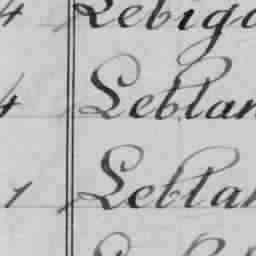 4 Lebiga
4 Leblan
1 Leblan